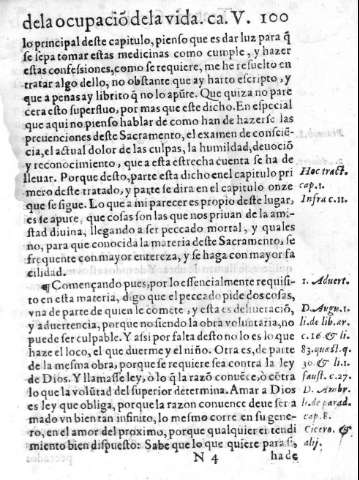 dela ocupació dela vida. ca. V. 100
lo principal deste capitulo, pienso que es dar luz para q̃
se sepa tomar estas medicinas como cumple, y hazer
estas confessiones, como se requiere, me he resuelto en
tratar algo dello, no obstante que ay harto escripto, y
que a penas ay librito q̃ no lo apũte. Que quiza no pare
cera esto superfluo, por mas que este dicho. En especial
que aqui no pienso hablar de como han de hazerse las
preuenciones deste Sacramento, el examen de consciē-
cia, el actual dolor de las culpas, la humildad, deuoció
y reconocimiento, que a esta estrecha cuenta se ha de
lleuar. Porque desto, parte esta dicho en el capitulo pri
mero deste tratado, y parte se dira en el capitulo onze
que se sigue. Lo que a mi parecer es propio deste lugar,
es se apure, que cosas son las que nos priuan de la ami-
stad diuina, llegando a ser peccado mortal, y quales
no, para que conocida la materia deste Sacramento, se
frequente con mayor entereza, y se haga con mayor fa
cilidad.
Hoc tract.
cap. 1.
Infra c. 11.
¶ Començando pues, por lo essencialmente requisi-
to en esta materia, digo que el peccado pide dos cosas,
vna de parte de quien le comete, y esta es deliberació,
y aduertencia, porque no siendo la obra voluntaria, no
puede ser culpable. Y assi por falta desto no lo es lo que
haze el loco, el que duerme y el niño. Otra es, de parte
de la mesma obra, porque se requiere sea contra la ley
de Dios. Y llamasse ley, ò lo q̃ la razõ conuēce, ò cõtra
lo que la volũtad del superior determina. Amar a Dios
es ley que obliga, porque la razon conuence deue ser a
mado vn bien tan infinito, lo mesmo corre en su gene-
ro, en el amor del proximo, porque qualquier entendi
miento bien dispuesto: Sabe que lo que quiere para si,
1. Aduert.
D. Aug. l.
li. de lib. ar.
c. 16 & li.
83. quæst. q.
30. & li. 1.
faust. c. 27.
D. Ambr.
li. de parad.
cap. 8.
Cicero. &
alij.
N 4 ha de